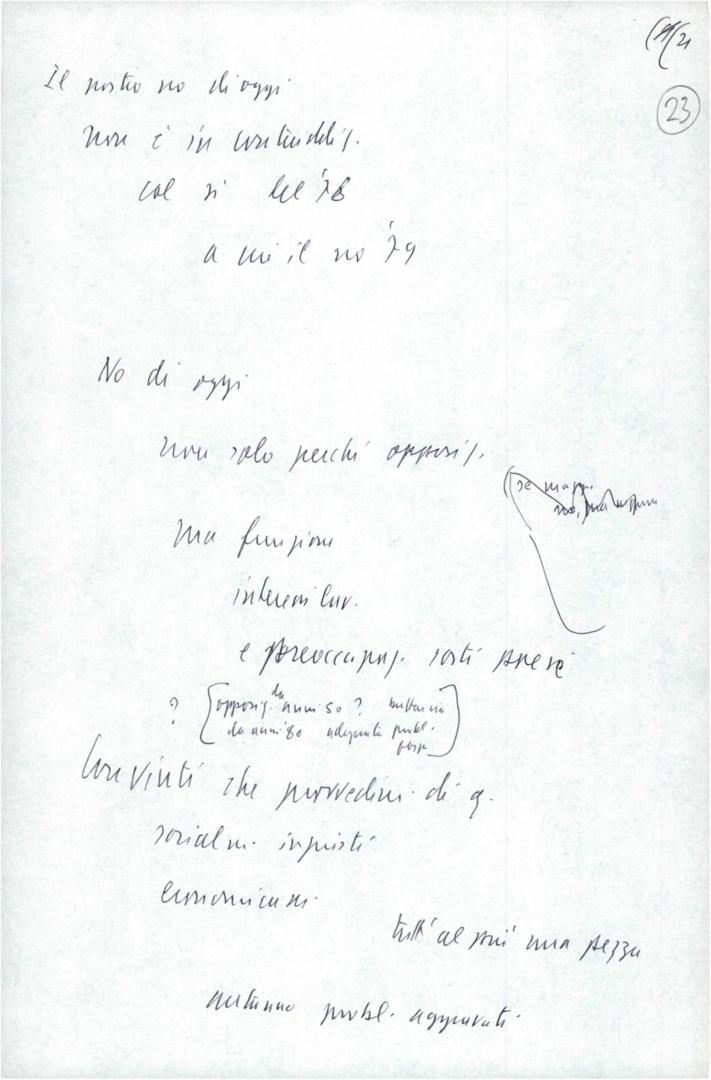 23
Il nostro no di oggi
non è in contraddiz.
col sì del '78
a cui il no '79
No di oggi
non solo perché opposiz.
(se mai
no, ma neppure
ma funzione
interessi lav.
e preoccupaz. sorti paese
? [opposiz. da anni 50 ?
da anni '80 adeguata probl.
Convinti che provvedim. di q.
socialm. ingiusti
economicam.
tutt'al più una pezza
autunno probl. aggravati.